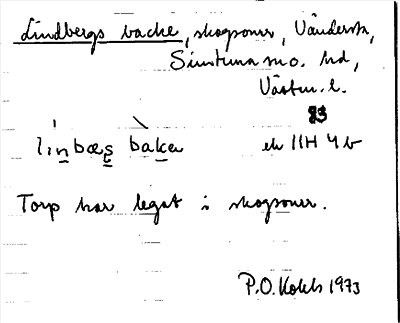 Lindbergs backe, skogsområ, Vändersta,
Simtuna sn o. hd,
Västm. l.
93
lìnbæs bàka ek 11H 4b
Torp har legat i skogsområ.
P.O. Kolsh 1973